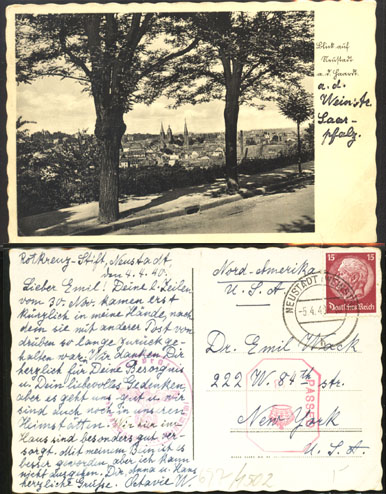 Blick auf
Neustadt
a. d. Haardt.
a. d.
Weinstr.
Saar-
pfalz.
Rotkreuz-Stift, Neustadt
den 4.4.40.
Lieber Emil! Deine lb. Zeilen
vom 30. Nov. kamen erst
kürzlich in meine Hände, nach
dem sie mit anderer Post von
drüben so lange zurück ge-
halten war. Wir danken Dir
herzlich für Deine Besorgnis
u. Dein liebevolles Gedenken,
aber es geht uns gut u. wir
sind auch noch in unserem
Heim
Haus sind besonders gut ver-
sorgt. Mit meinem Bein ist es
besser geworden, aber ich kann
nicht
herzliche Grüße. Octavie W.
Nord-Amerika
U. S. A.
15 15
Deutsches Reich
NEUSTADT
5.4.4
Dr. Emil Wack
222 W. 84th str.
New York
U. S. A.
PASSED